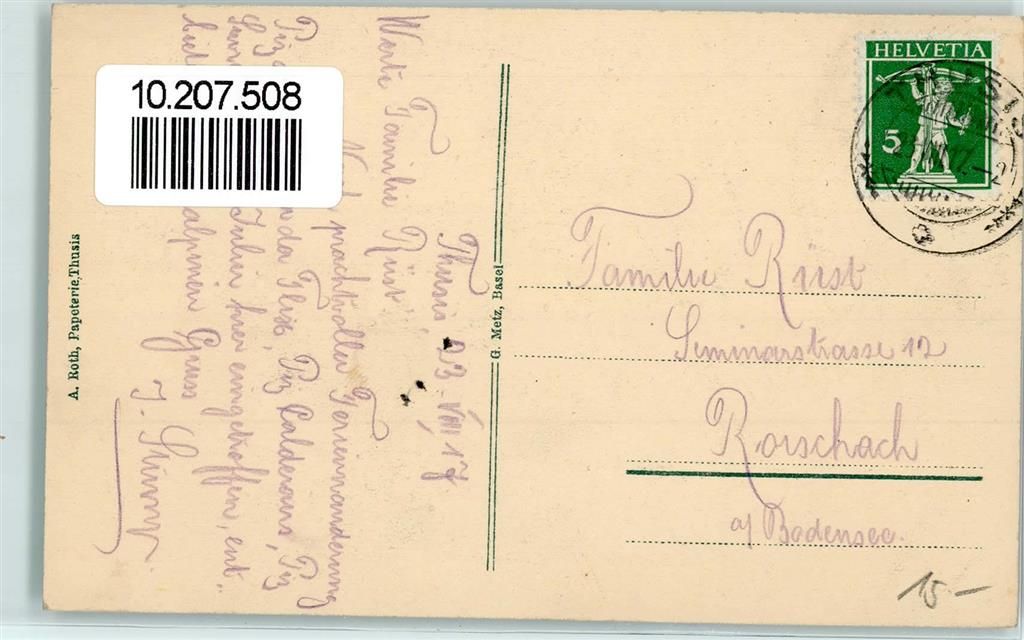 10.207.508
HELVETIA
5
Thusis 23. VIII 17
Werte Familie Rüst!
prachtvoller Ferienwanderung
Piz
da Flix, Piz Calderas, Piz
Julier hier eingetroffen, ent-
biet
alpinen Gruss
J.
A. Roth, Papeterie, Thusis
G. Metz, Basel
Familie Rüst
Seminarstrasse 12
Rorschach
a/ Bodensee.
15 –